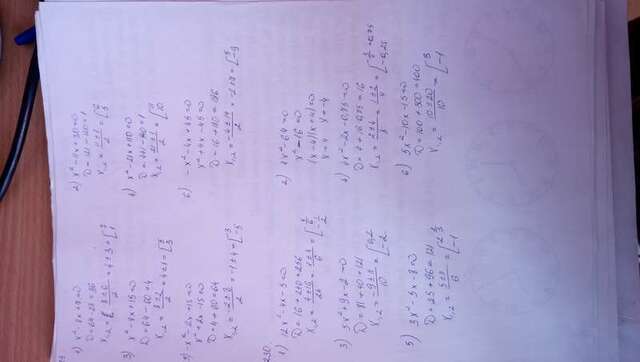 1) x² - 8x + 7 = 0
D = 64 - 28 = 36
x₁,₂ = (8 ± 6)/2 = 4 ± 3 = [7 1
2) x² - 11x + 30 = 0
D = 121 - 120 = 1
x₁,₂ = (11 ± 1)/2 = [6 5
3) x² - 8x + 15 = 0
D = 64 - 60 = 4
x₁,₂ = (8 ± 2)/2 = 4 ± 1 = [5 3
4) x² - 21x + 110 = 0
D = 441 - 440 = 1
x₁,₂ = (21 ± 1)/2 = [11 10
5) -x² - 2x + 15 = 0
x² + 2x - 15 = 0
D = 4 + 60 = 64
x₁,₂ = (-2 ± 8)/2 = -1 ± 4 = [3 -5
6) -x² - 4x + 45 = 0
x² + 4x - 45 = 0
D = 16 + 180 = 196
x₁,₂ = (-4 ± 14)/2 = -2 ± 7 = [5 -9
230
1) 12x² - 4x - 5 = 0
D = 16 + 240 = 256
x₁,₂ = (4 ± 16)/24 = (1 ± 4)/6 = [5/6 -1/2
2) 4x² - 64 = 0
x² - 16 = 0
(x - 4)(x + 4) = 0
x = 4 x = -4
3) 5x² + 9x - 2 = 0
D = 81 + 40 = 121
x₁,₂ = (-9 ± 11)/10 = [0,2 -2
4) 4x² - 2x - 0,75 = 0
D = 4 + 16·0,75 = 16
x₁,₂ = (2 ± 4)/8 = (1 ± 2)/4 = [3/4 = 0,75 -0,25
5) 3x² - 5x - 8 = 0
D = 25 + 96 = 121
x₁,₂ = (5 ± 11)/6 = [2 2/3 -1
6) 5x² - 10x - 15 = 0
D = 100 + 300 = 400
x₁,₂ = (10 ± 20)/10 = [3 -1